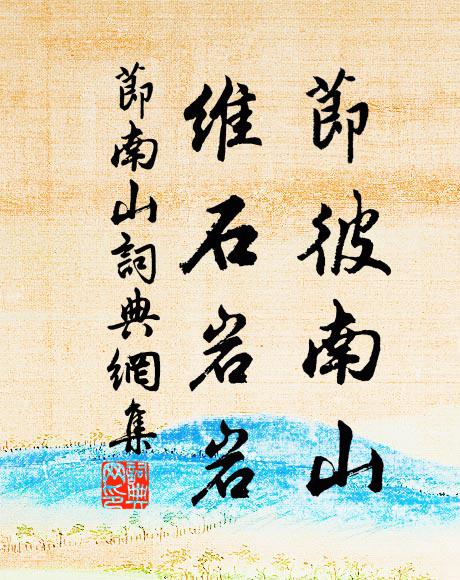 節彼南山
維石岩岩
節南山詞典網集